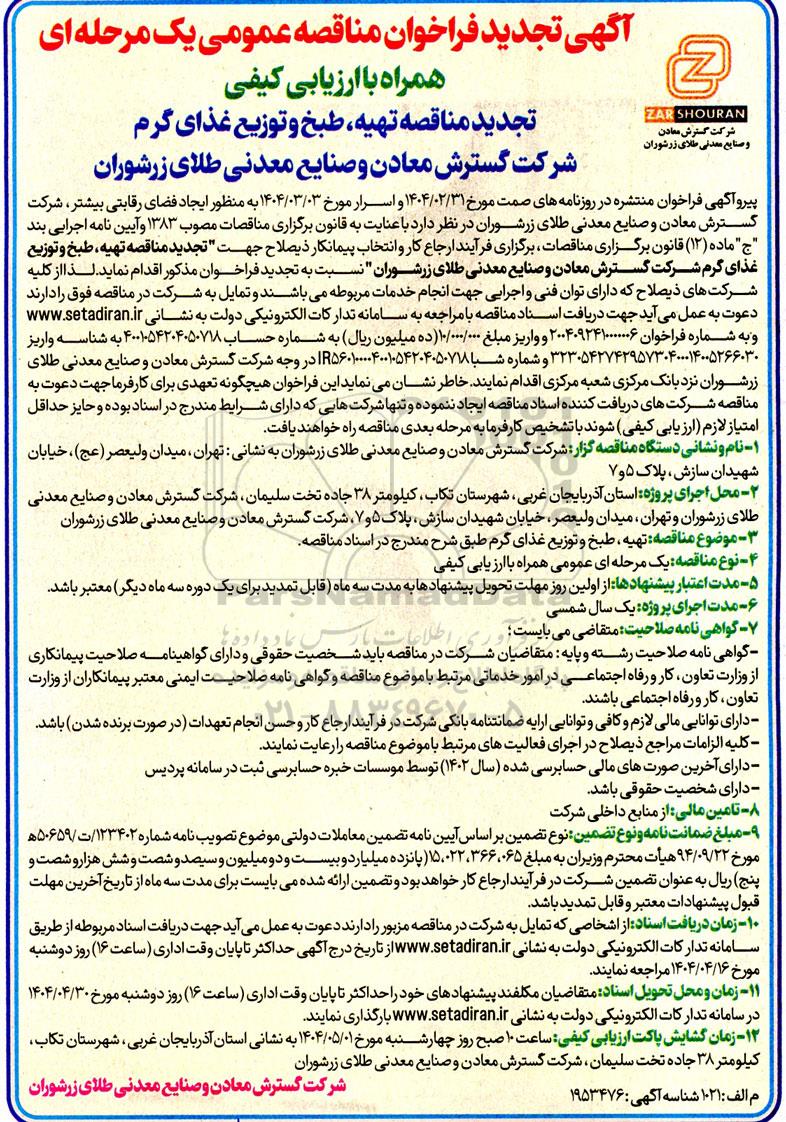 آگهی تجدید فراخوان مناقصه عمومی یک مرحله ای
همراه با ارزیابی کیفی
تجدید مناقصه تهیه، طبخ و توزیع غذای گرم
شرکت گسترش معادن و صنایع معدنی طلای زرشوران
ZAR SHOURAN
شرکت گسترش معادن
و صنایع معدنی طلای زرشوران
پیرو آگهی فراخوان منتشره در روزنامه های صمت مورخ ۱۴۰۴/۰۲/۳۱ و اسرار مورخ ۱۴۰۴/۰۳/۰۳ به منظور ایجاد فضای رقابتی بیشتر ، شرکت
گسترش معادن و صنایع معدنی طلای زرشوران در نظر دارد با عنایت به قانون برگزاری مناقصات مصوب ۱۳۸۳ و آیین نامه اجرایی بند
"ج" ماده (۱۲) قانون برگزاری مناقصات ، برگزاری فرآیند ارجاع کار و انتخاب پیمانکار ذیصلاح جهت "تجدید مناقصه تهیه، طبخ و توزیع
غذای گرم شرکت گسترش معادن و صنایع معدنی طلای زرشوران" نسبت به تجدید فراخوان مذکور اقدام نماید. لذا از کلیه
شرکت های ذیصلاح که دارای توان فنی و اجرایی جهت انجام خدمات مربوطه می باشند و تمایل به شرکت در مناقصه فوق را دارند
دعوت به عمل می آید جهت دریافت اسناد مناقصه با مراجعه به سامانه تدارکات الکترونیکی دولت به نشانی www.setadiran.ir
و به شماره فراخوان ۲۰۰۴۰۹۲۴۱۰۰۰۰۰۰۶ و واریز مبلغ ۱۰/۰۰۰/۰۰۰ (ده میلیون ریال) به شماره حساب ۴۰۰۱۰۵۴۲۰۴۰۵۰۷۱۸ به شناسه واریز
۳۲۳۰۵۴۲۷۴۲۹۵۷۳۰۴۰۰۰۱۴۰۰۵۲۶۶۰۳۰ و شماره شبا IR۵۶۰۱۰۰۰۰۴۰۰۱۰۵۴۲۰۴۰۵۰۷۱۸ در وجه شرکت گسترش معادن و صنایع معدنی طلای
زرشوران نزد بانک مرکزی شعبه مرکزی اقدام نمایند. خاطر نشان می نماید این فراخوان هیچگونه تعهدی برای کارفرما جهت دعوت به
مناقصه شرکت های دریافت کننده اسناد مناقصه ایجاد ننموده و تنها شرکت هایی که دارای شرایط مندرج در اسناد بوده و حایز حداقل
امتیاز لازم (ارزیابی کیفی) شوند با تشخیص کارفرما به مرحله بعدی مناقصه راه خواهند یافت.
۱- نام و نشانی دستگاه مناقصه گزار: شرکت گسترش معادن و صنایع معدنی طلای زرشوران به نشانی : تهران ، میدان ولیعصر (عج) ، خیابان
شهیدان سازش ، پلاک ۵ و ۷
۲- محل اجرای پروژه: استان آذربایجان غربی ، شهرستان تکاب ، کیلومتر ۳۸ جاده تخت سلیمان ، شرکت گسترش معادن و صنایع معدنی
طلای زرشوران و تهران ، میدان ولیعصر ، خیابان شهیدان سازش ، پلاک ۵ و ۷ ، شرکت گسترش معادن و صنایع معدنی طلای زرشوران
۳- موضوع مناقصه: تهیه ، طبخ و توزیع غذای گرم طبق شرح مندرج در اسناد مناقصه.
۴- نوع مناقصه: یک مرحله ای عمومی همراه با ارزیابی کیفی
۵- مدت اعتبار پیشنهادها: از اولین روز مهلت تحویل پیشنهادها به مدت سه ماه (قابل تمدید برای یک دوره سه ماه دیگر) معتبر باشد.
۶- مدت اجرای پروژه: یک سال شمسی
۷- گواهی نامه صلاحیت: متقاضی می بایست ؛
-گواهی نامه صلاحیت رشته و پایه : متقاضیان شرکت در مناقصه باید شخصیت حقوقی و دارای گواهینامه صلاحیت پیمانکاری
از وزارت تعاون ، کار و رفاه اجتماعی در امور خدماتی مرتبط با موضوع مناقصه و گواهی نامه صلاحیت ایمنی معتبر پیمانکاران از وزارت
تعاون ، کار و رفاه اجتماعی باشند.
-دارای توانایی مالی لازم و کافی و توانایی ارایه ضمانتنامه بانکی شرکت در فرآیند ارجاع کار و حسن انجام تعهدات (در صورت برنده شدن) باشد.
-کلیه الزامات مراجع ذیصلاح در اجرای فعالیت های مرتبط با موضوع مناقصه را رعایت نمایند.
-دارای آخرین صورت های مالی حسابرسی شده (سال ۱۴۰۲) توسط موسسات خبره حسابرسی ثبت در سامانه پردیس
-دارای شخصیت حقوقی باشد.
۸- تامین مالی: از منابع داخلی شرکت
۹- مبلغ ضمانت نامه و نوع تضمین: نوع تضمین بر اساس آیین نامه تضمین معاملات دولتی موضوع تصویب نامه شماره ۱۲۳۴۰۲/ت/۵۰۶۵۹ه
مورخ ۹۴/۰۹/۲۲ هیأت محترم وزیران به مبلغ ۱۵،۰۲۲،۳۶۶،۰۶۵ (پانزده میلیارد و بیست و دو میلیون و سیصد و شصت و شش هزار و شصت و
پنج) ریال به عنوان تضمین شرکت در فرآیند ارجاع کار خواهد بود و تضمین ارائه شده می بایست برای مدت سه ماه از تاریخ آخرین مهلت
قبول پیشنهادات معتبر و قابل تمدید باشد.
۱۰- زمان دریافت اسناد: از اشخاصی که تمایل به شرکت در مناقصه مزبور را دارند دعوت به عمل می آید جهت دریافت اسناد مربوطه از طریق
سامانه تدارکات الکترونیکی دولت به نشانی www.setadiran.ir از تاریخ درج آگهی حداکثر تا پایان وقت اداری (ساعت ۱۶) روز دوشنبه
مورخ ۱۴۰۴/۰۴/۱۶ مراجعه نمایند.
۱۱- زمان و محل تحویل اسناد: متقاضیان مکلفند پیشنهادهای خود را حداکثر تا پایان وقت اداری (ساعت ۱۶) روز دوشنبه مورخ ۱۴۰۴/۰۴/۳۰
در سامانه تدارکات الکترونیکی دولت به نشانی www.setadiran.ir بارگذاری نمایند.
۱۲- زمان گشایش پاکت ارزیابی کیفی: ساعت ۱۰ صبح روز چهارشنبه مورخ ۱۴۰۴/۰۵/۰۱ به نشانی استان آذربایجان غربی ، شهرستان تکاب ،
کیلومتر ۳۸ جاده تخت سلیمان ، شرکت گسترش معادن و صنایع معدنی طلای زرشوران
شرکت گسترش معادن و صنایع معدنی طلای زرشوران
م الف: ۱۰۲۱ شناسه آگهی: ۱۹۵۳۴۷۶
ParsNamadData
۰۲۱-۸۸۳۴۹۶۷۰-۵